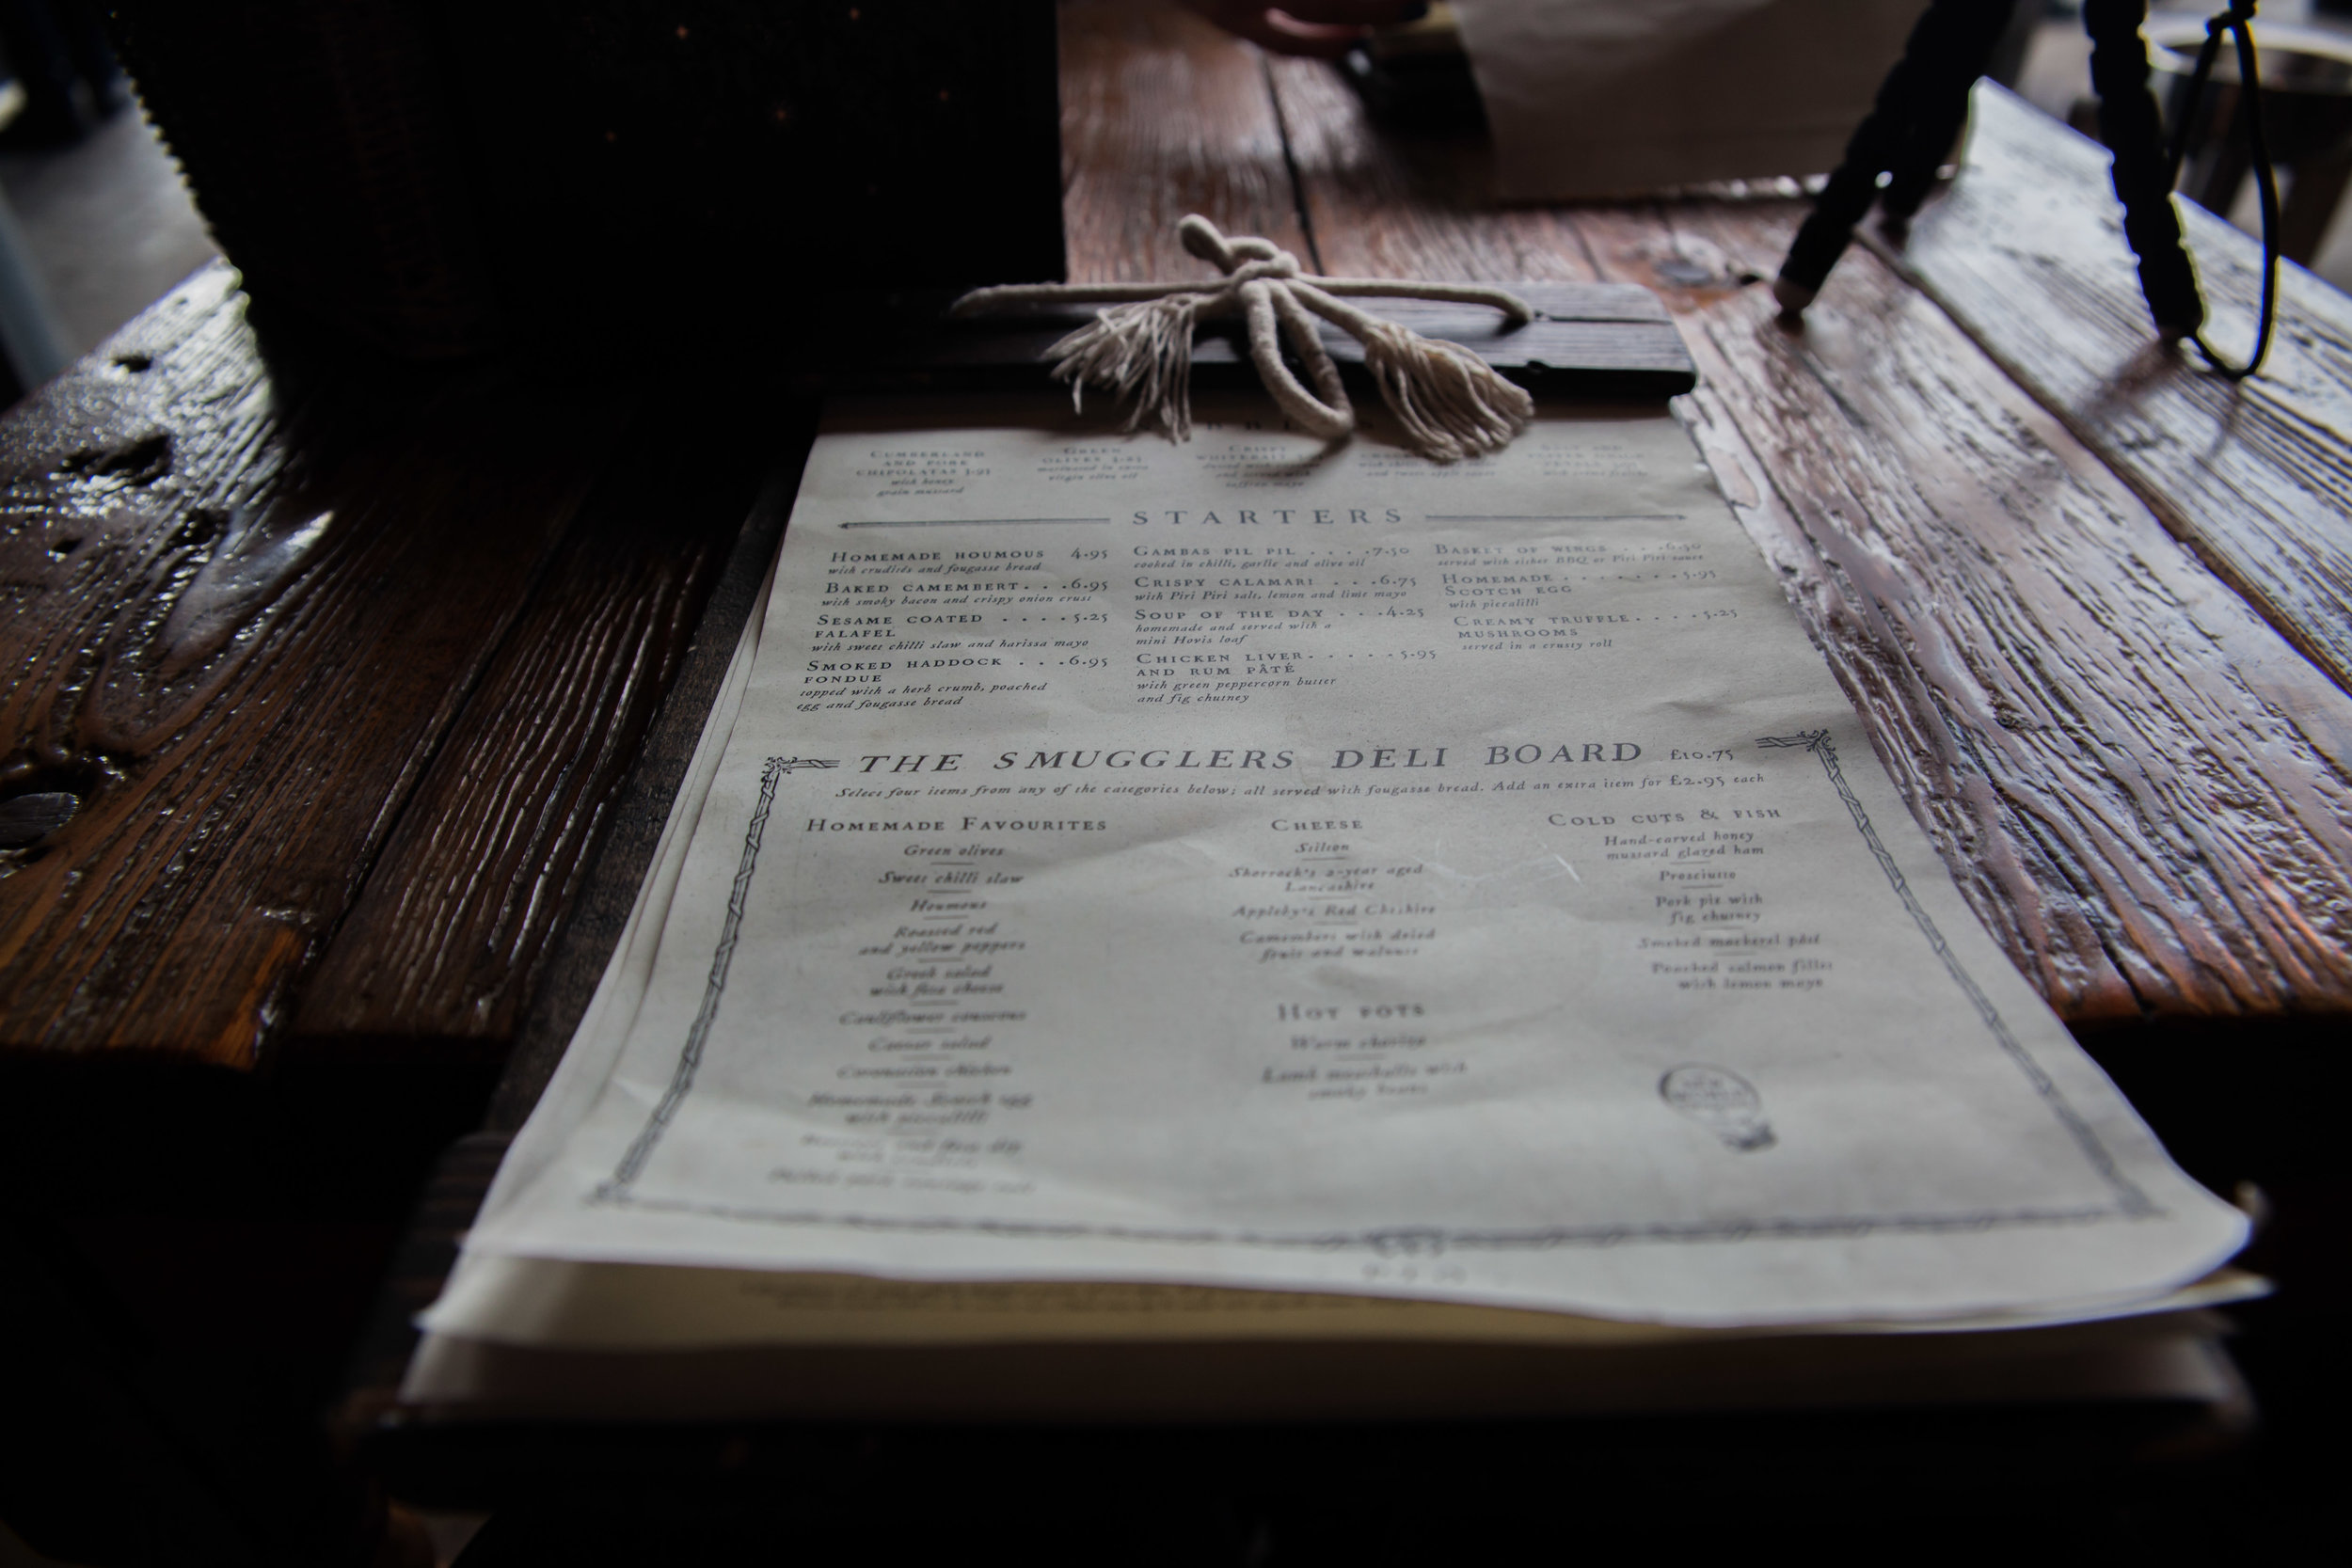 CUMBERLAND
AND PORK
CHIPOLATAS 3.95
with honey
grain mustard
GREEN
OLIVES
marinated in extra
virgin olive oil
CRISPY
WHITEBAIT
saffron mayo
STARTERS
HOMEMADE HOUMOUS 4.95
with crudités and fougasse bread
BAKED CAMEMBERT. . .6.95
with smoky bacon and crispy onion crust
SESAME COATED . . . .5.25
FALAFEL
with sweet chilli slaw and harissa mayo
SMOKED HADDOCK . . .6.95
FONDUE
topped with a herb crumb, poached
egg and fougasse bread
GAMBAS PIL PIL . . . .7.50
cooked in chilli, garlic and olive oil
CRISPY CALAMARI . . . .6.75
with Piri Piri salt, lemon and lime mayo
SOUP OF THE DAY . . . .4.25
homemade and served with a
mini Hovis loaf
CHICKEN LIVER. . . . . .5.95
AND RUM PÂTÉ
with green peppercorn butter
and fig chutney
BASKET OF WINGS . . .6.50
served with either BBQ or Piri Piri sauce
HOMEMADE . . . . . . .5.95
SCOTCH EGG
with piccalilli
CREAMY TRUFFLE. . . . .5.25
MUSHROOMS
served in a crusty roll
THE SMUGGLERS DELI BOARD £10.75
Select four items from any of the categories below; all served with fougasse bread. Add an extra item for £2.95 each
HOMEMADE FAVOURITES
Green olives
Sweet chilli slaw
Houmous
Roasted red
and yellow peppers
Greek salad
with feta cheese
Cauliflower couscous
Caesar salad
Coronation chicken
Homemade Scotch egg
with piccalilli
CHEESE
Stilton
Shorrock's 2-year aged
Lancashire
Appleby's Red Cheshire
Camembert with dried
fruit and walnuts
HOT POTS
Warm chorizo
Lamb meatballs with
smoky beans
COLD CUTS & FISH
Hand-carved honey
mustard glazed ham
Prosciutto
Pork pie with
fig chutney
Smoked mackerel pâté
Poached salmon fillet
with lemon mayo